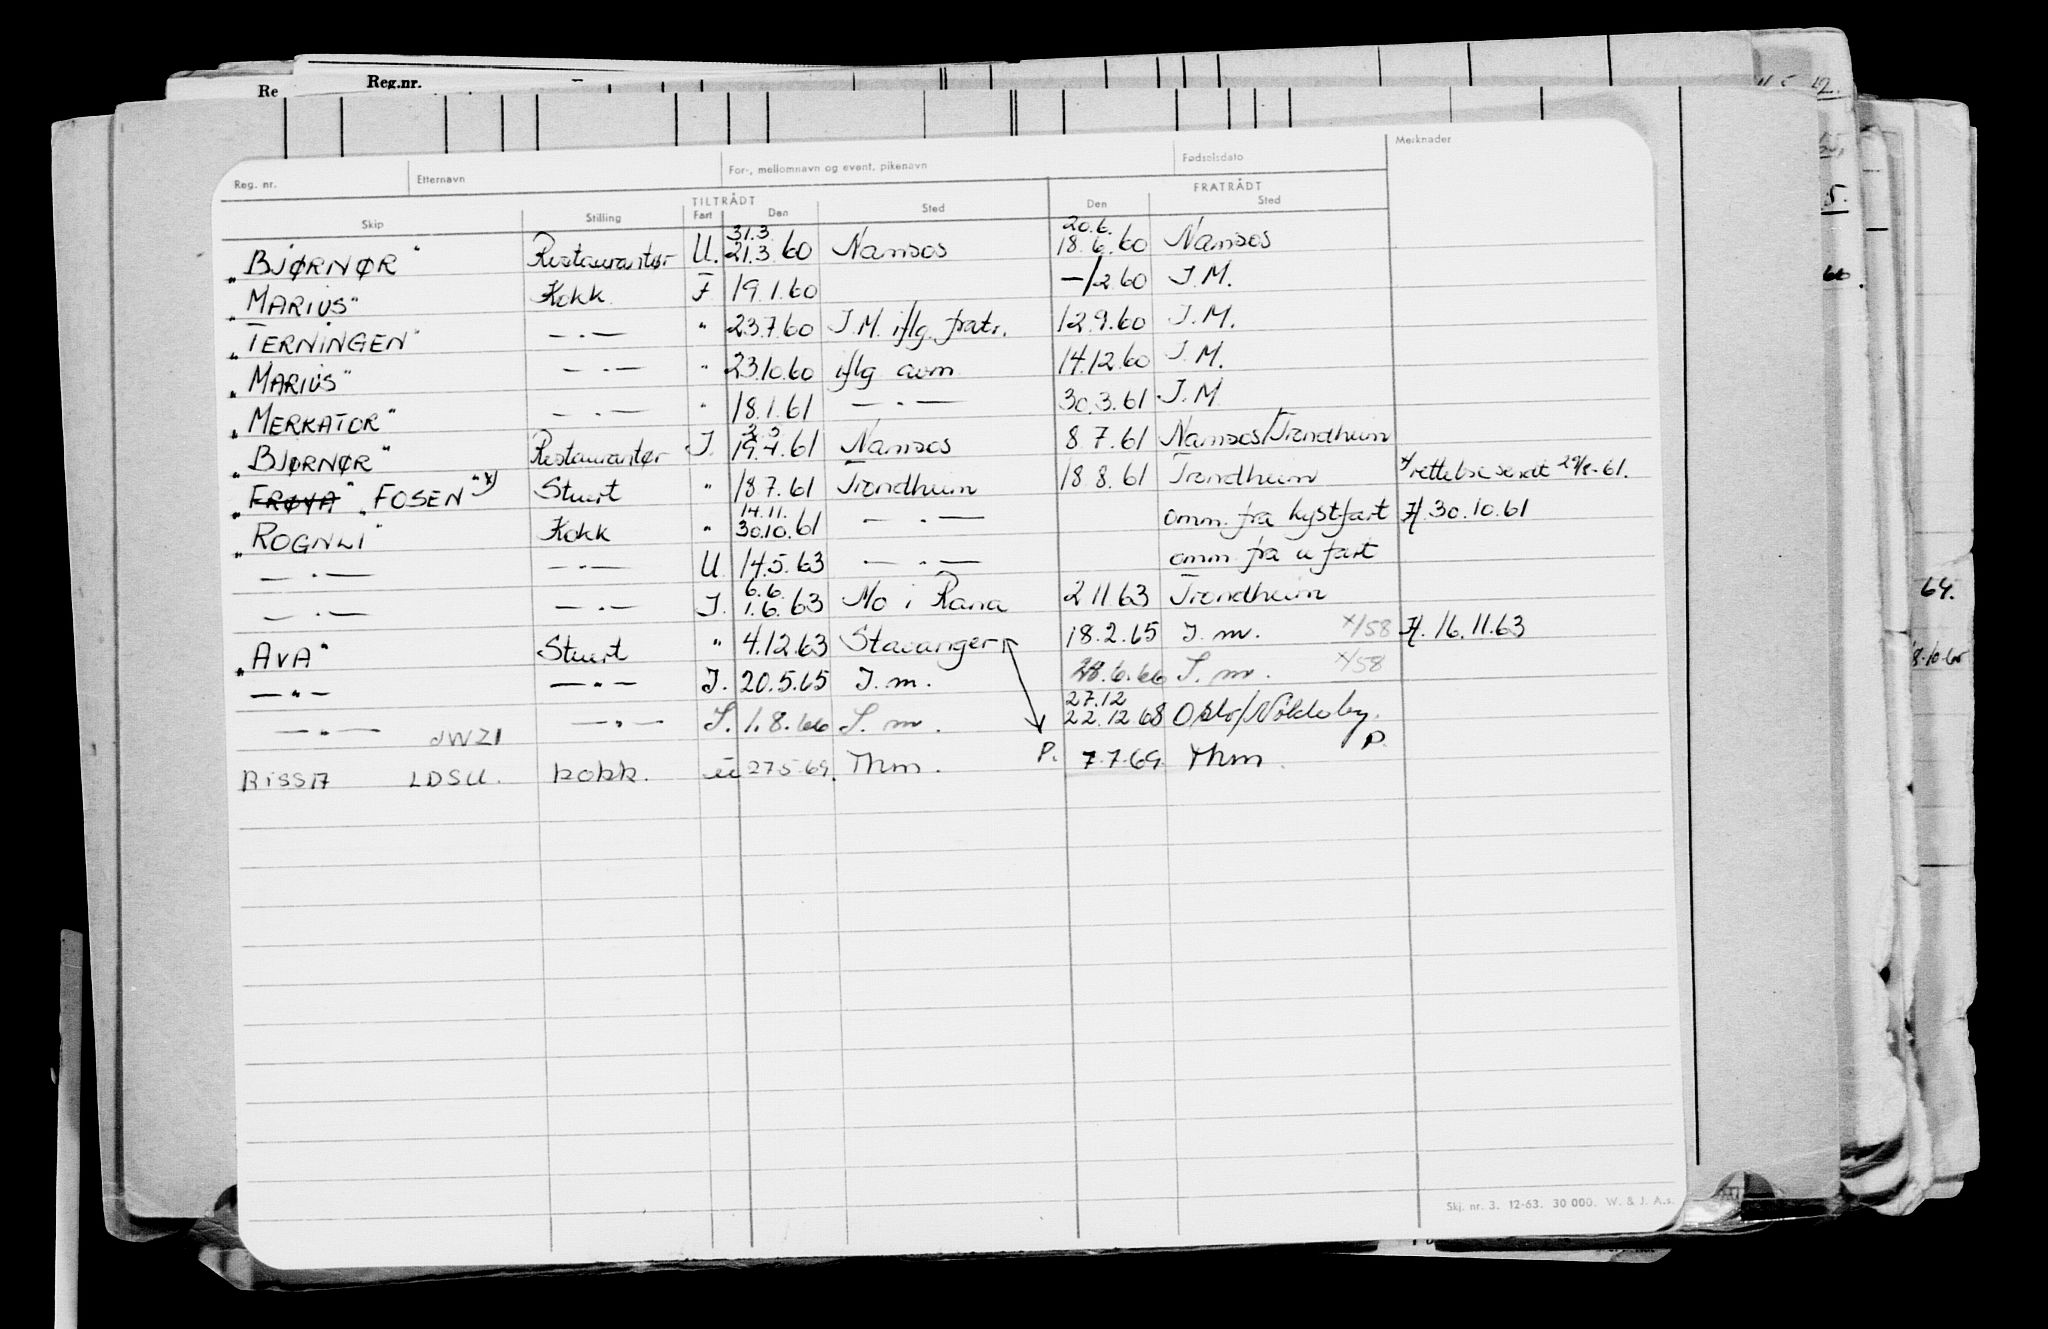 Re Reg.nr.
Reg. nr. Etternavn For-, mellomnavn og event. pikenavn Fødselsdato Merknader
TILTRÅDT FRATRÅDT
Skip Stilling Fart Den Sted Den Sted
31.3. 20.6.
"BJØRNØR" Restaurantør U. 21.3.60 Namsos 18.6.60 Namsos
"MARIUS" Kokk F 19.1.60 -/2.60 I.M.
"TERNINGEN" — . — " 23.7.60 I.M. iflg. fratr. 12.9.60 I.M.
"MARIUS" — . — " 23.10.60 iflg avm 14.12.60 I.M.
"MERKATOR" — . — " 18.1.61 — . — 30.3.61 I.M.
"BJØRNØR" Restaurantør I. 19.4.61 Namsos 8.7.61 Namsos/Trondheim
"FRØYA" "FOSEN" x) Stuert " 18.7.61 Trondheim 18.8.61 Trondheim x) rettelse sendt 29/8-61.
14.11.
"ROGNLI" Kokk " 30.10.61 — . — omm. fra kystfart H. 30.10.61
— . — — . — U 14.5.63 — . — omm. fra u fart
6.6.
— . — — . — I. 1.6.63 Mo i Rana 2.11.63 Trondheim
"AVA" Stuert " 4.12.63 Stavanger 18.2.65 I.m. x/58 H. 16.11.63
— " — — " — I. 20.5.65 I.m. 28.6.66 S.m. x/58
27.12
— " — JWZI — " — S. 1.8.66 S.m. 22.12.68 Oslo/
P.
RISSA LDSU. kokk. u 27.5.69. Thm. P. 7.7.69. Thm.
64.
18.10.65
Skj. nr. 3. 12-63. 30 000. W. & J. A.s.